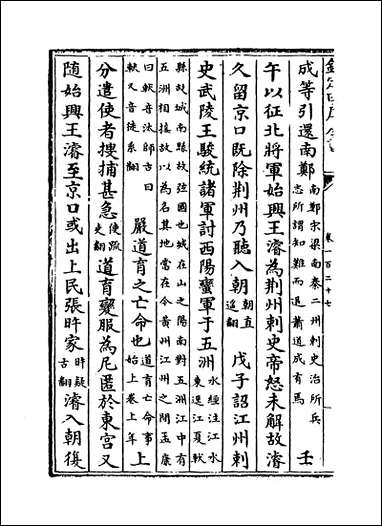 欽定四庫全書
卷一百二十七
成等引還南鄭南鄭宋梁南秦二州刺史治所兵志所謂知難而退蕭道成有焉壬
午以征北將軍始興王濬為荆州刺史帝怒未解故濬
久留京口既除荆州乃聽入朝朝直遙翻戊子詔江州刺
史武陵王駿統諸軍討西陽蠻軍于五洲水經注江水東逕江夏軑
縣故城南縣故弦國也城在山之陽南對五洲江中有五洲相接故以為名其地當在今黃州江州之間孟康
曰軑音汏師古曰軑又音徒系翻嚴道育之亡命也道育亡命事始上卷上年上
分遣使者搜捕甚急使疏吏翻道育變服為尼匿於東宮又
隨始興王濬至京口或出止民張旿家旿疑古翻濬入朝復